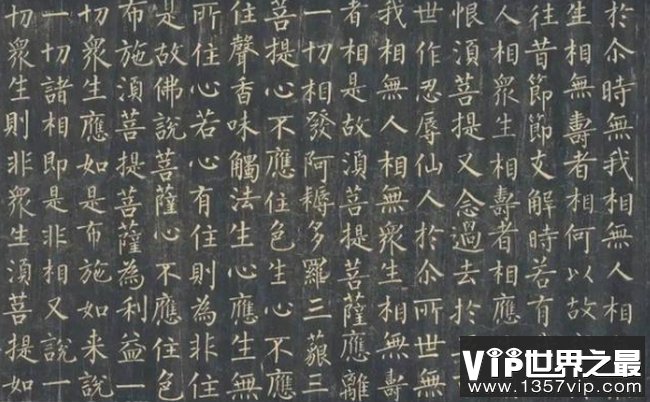 於尒時無我相無人相
生相無壽者相何以故
往昔節節支解時若有
人相衆生相壽者相應
恨須菩提又念過去於
世作忍辱仙人於尒所世無
我相無人相無衆生相無壽
者相是故須菩提菩薩應離
一切相發阿耨多羅三藐三
菩提心不應住色生心不應
住聲香味觸法生心應生無
所住心若心有住則為非住
是故佛說菩薩心不應住色
布施須菩提菩薩為利益一
切衆生應如是布施如来說
一切諸相即是非相又說一
切衆生則非衆生須菩提如
VIP世界之最
www.1357vip.com